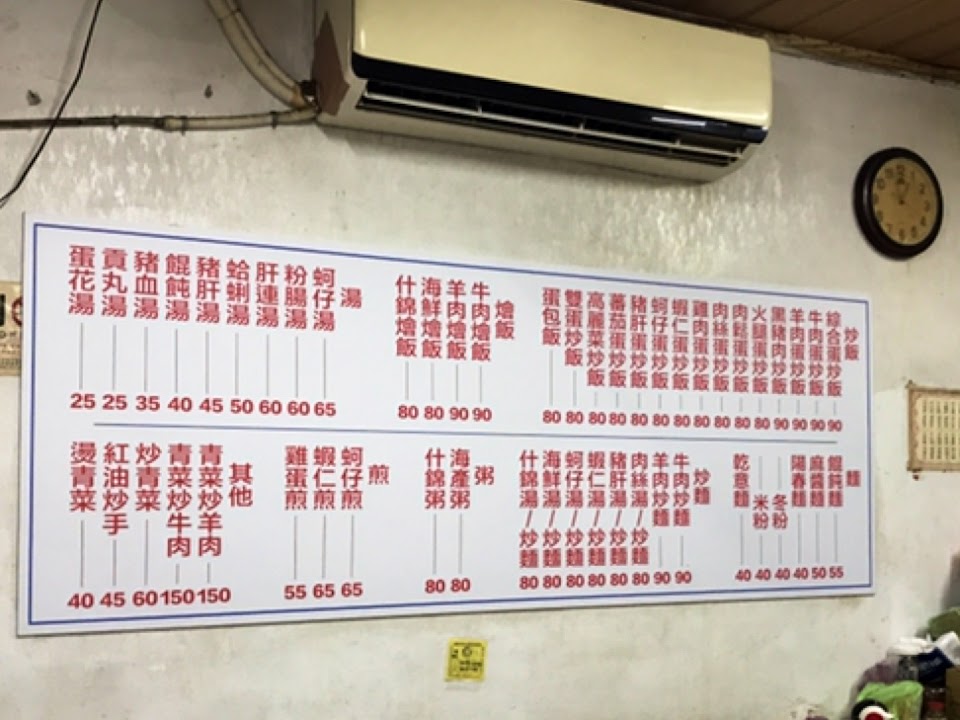 炒飯
綜合蛋炒飯 90
牛肉蛋炒飯 90
羊肉蛋炒飯 90
黑豬肉炒飯 90
火腿蛋炒飯 80
肉鬆蛋炒飯 80
肉絲蛋炒飯 80
雞肉蛋炒飯 80
蝦仁蛋炒飯 80
蚵仔蛋炒飯 80
豬肝蛋炒飯 80
蕃茄蛋炒飯 80
高麗菜炒飯 80
雙蛋炒飯 80
蛋包飯 80
燴飯
牛肉燴飯 90
羊肉燴飯 90
海鮮燴飯 80
什錦燴飯 80
湯
蚵仔湯 65
粉腸湯 60
肝連湯 60
蛤蜊湯 50
豬肝湯 45
餛飩湯 40
豬血湯 35
貢丸湯 25
蛋花湯 25
麵
餛飩麵 55
麻醬麵 50
陽春麵 40
冬粉 40
米粉 40
乾意麵 40
炒麵
牛肉炒麵 90
羊肉炒麵 90
肉絲湯/炒麵 80
豬肝湯/炒麵 80
蝦仁湯/炒麵 80
蚵仔湯/炒麵 80
海鮮湯/炒麵 80
什錦湯/炒麵 80
粥
海產粥 80
什錦粥 80
煎
蚵仔煎 65
蝦仁煎 65
雞蛋煎 55
其他
青菜炒羊肉 150
青菜炒牛肉 150
炒青菜 60
紅油炒手 45
燙青菜 40